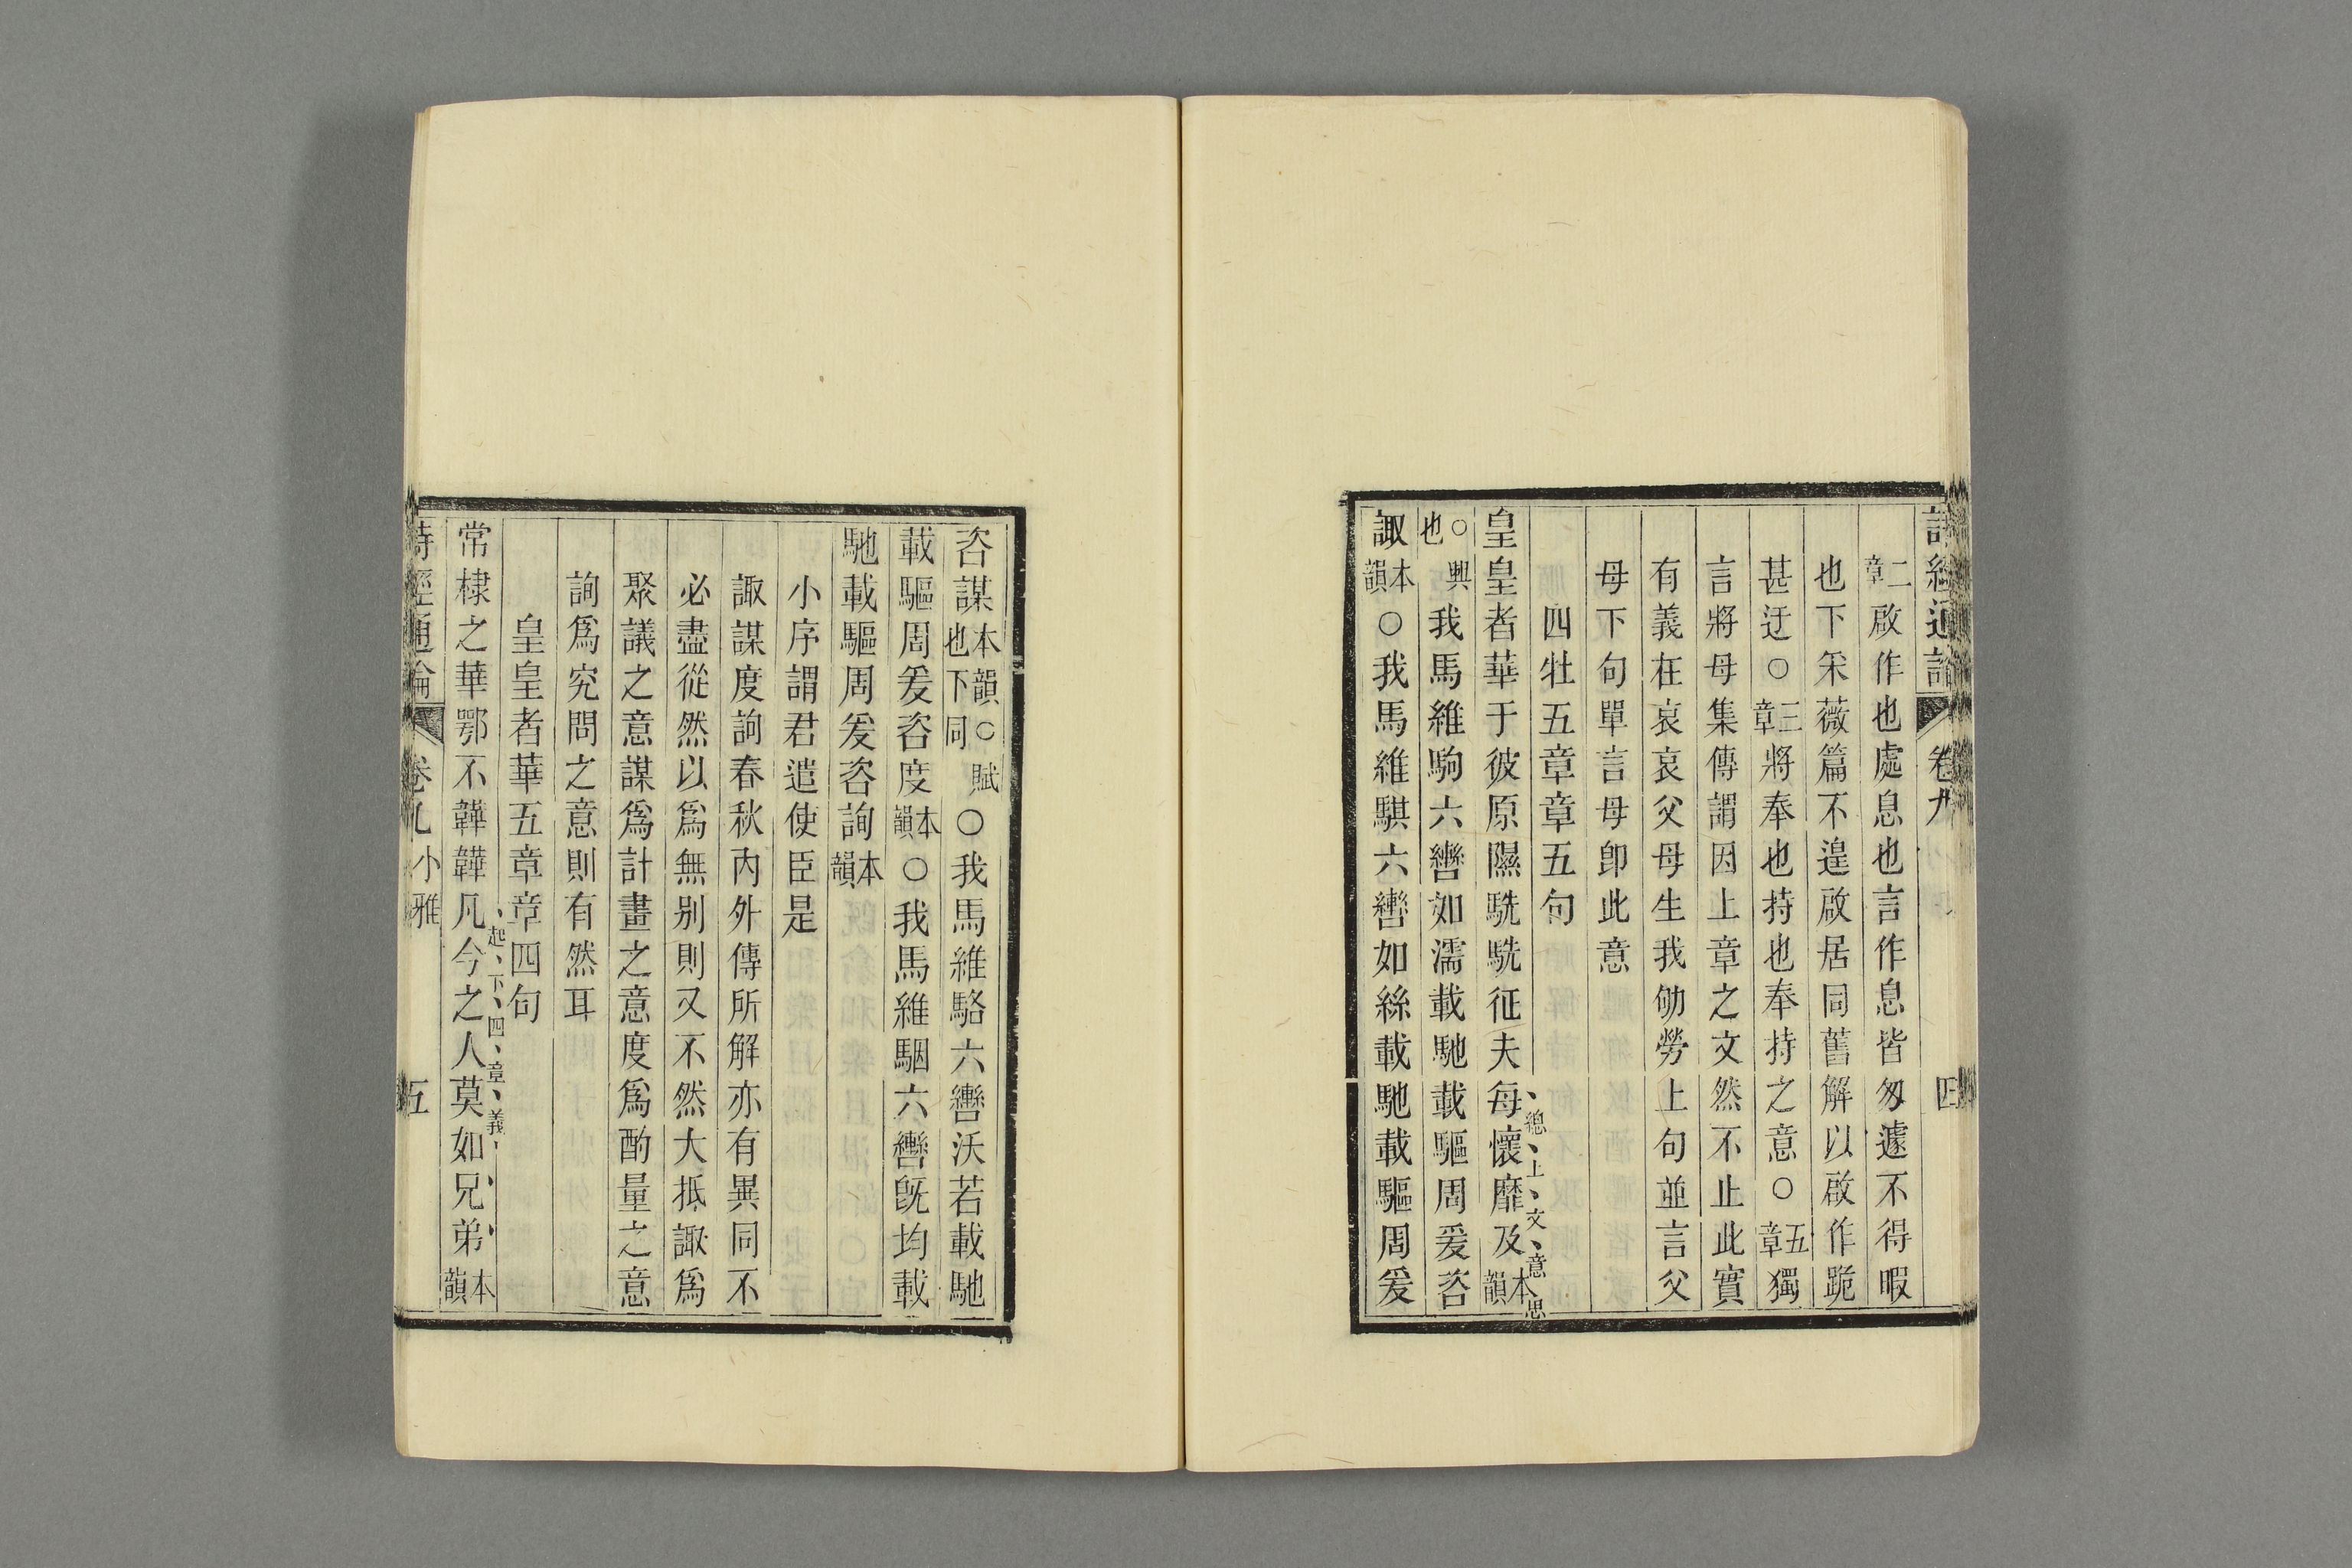 詩經通論 卷九 四
二章啟作也處息也言作息皆匆遽不得暇
也下采薇篇不遑啟居同舊解以啟作跪
甚迂○三章將奉也持也奉持之意○五章獨
言將母集傳謂因上章之文然不止此實
有義在哀哀父母生我劬勞上句並言父
母下句單言母卽此意
四牡五章章五句
皇皇者華于彼原隰駪駪征夫每懷靡及本韻
總上文意思
○興也我馬維駒六轡如濡載馳載驅周爰咨
諏本韻○我馬維騏六轡如絲載馳載驅周爰
咨謀本韻○賦也下同○我馬維駱六轡沃若載馳
載驅周爰咨度本韻○我馬維駰六轡旣均載
馳載驅周爰咨詢本韻
小序謂君遣使臣是
諏謀度詢春秋內外傳所解亦有異同不
必盡從然以爲無别則又不然大抵諏爲
聚議之意謀爲計畫之意度爲酌量之意
詢爲究問之意則有然耳
皇皇者華五章章四句
常棣之華鄂不韡韡凡今之人莫如兄弟本韻
起下四章義
詩經通論 卷九 小雅 五